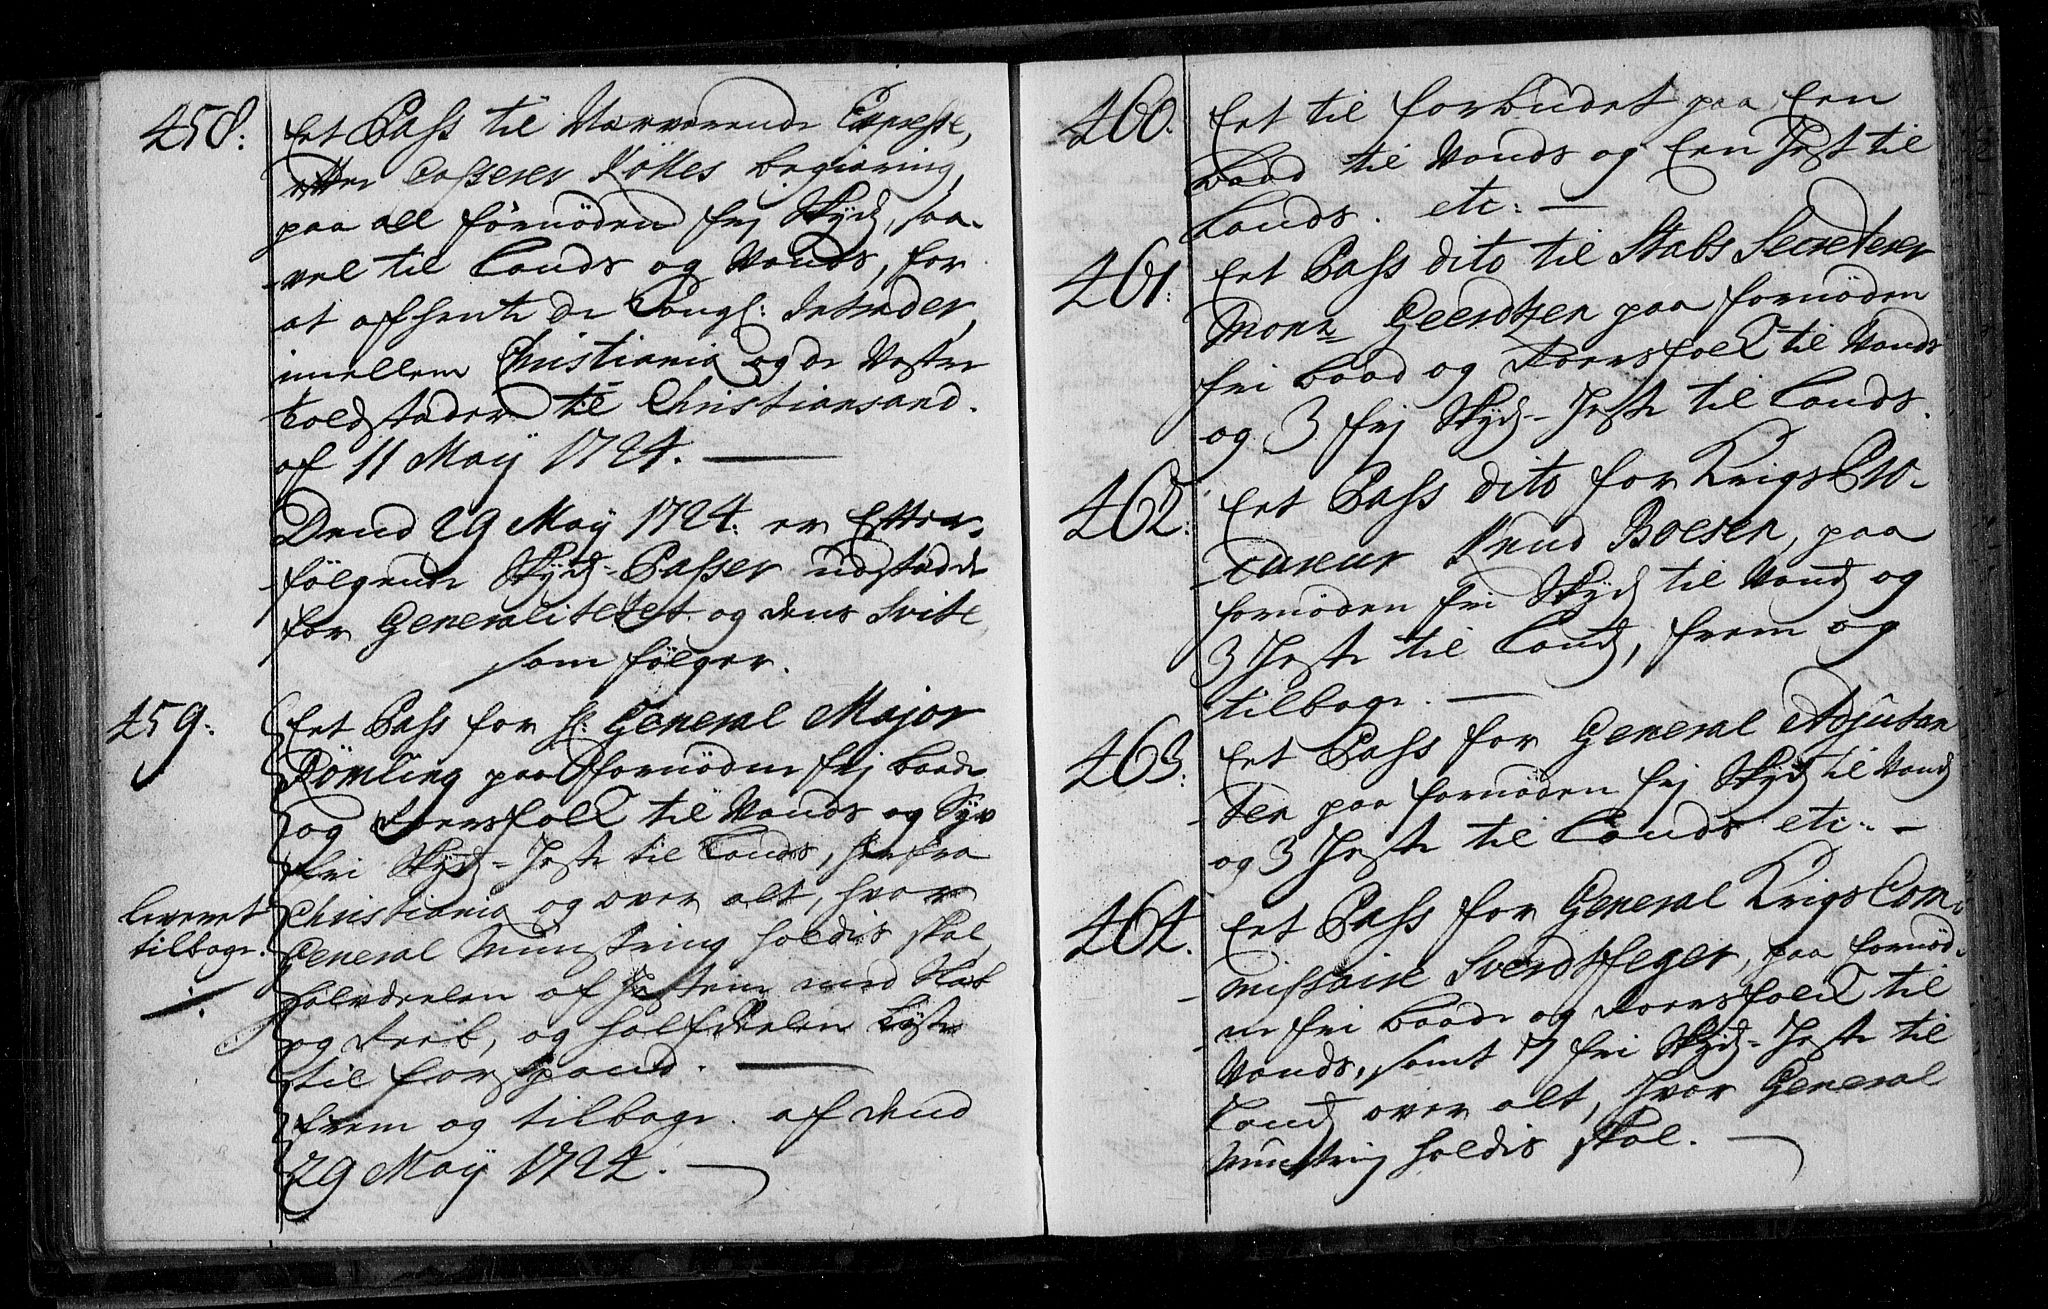 458:
Et Pass til Nærværende Expresse,
efter Casserer Kølles begiæring,
paa all fornöden frj Skyds, saa-
vel til Lands og Vands, for
at afhente de Kongl: Intrader,
imellem Christiania og de Vestre
toldstæder til Christiansand.
af 11 Maÿ 1724.
Dend 29 Maÿ 1724. er Efter-
følgende Skyds-Passer udstædde
for Generalitetet og dens Svite,
som følger.
459:
Et Pass for H: General Major
Römling paa fornöden frj baade
og Roersfolk til Vands og Syv
fri Skyds-Heste til Lands, her fra
Christiania og over alt, hvor
General Munstring holdis skal,
halvdeelen af Hestene med Sæl
og Reeb, og halfdeelen Løse
til forspand.
frem og tilbage. af dend
29 Maÿ 1724.
leveret
tilbage.
./.
460.
Et til forbudet paa Een
baad til Vands og Een Hest til
Lands. etc:
461:
Et Pass dito til Stabs Secreterer
Monr Geerdtzen paa fornöden
fri baad og Roersfolk til Vands
og 3 frj Skyds-Heste til Lands.
462:
Et Pass dito for Krigs Pro-
-cureur Knud Boesen, paa
fornöden fri Skyds til Vands og
3 Heste til Lands, frem og
tilbage.
463:
Et Pass for General Adjutan-
-ten paa fornöden frj Skyds til Vands
og 3 Heste til Lands etc:
464.
Et Pass for General Krigs Com-
-missaire Sverdtfeger, paa fornöd-
-ne fri baade og Roersfolk til
Vands, samt 7 fri Skyds-Heste til
Lands over alt, hvor General
Munstring holdis skal.